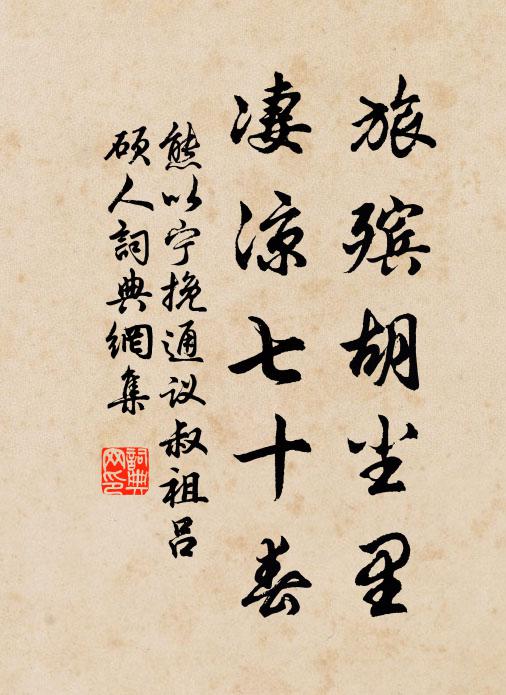 旅殡胡尘里
凄凉七十春
熊以宁挽通议叔祖吕
硕人詞典網集
詞典
网印